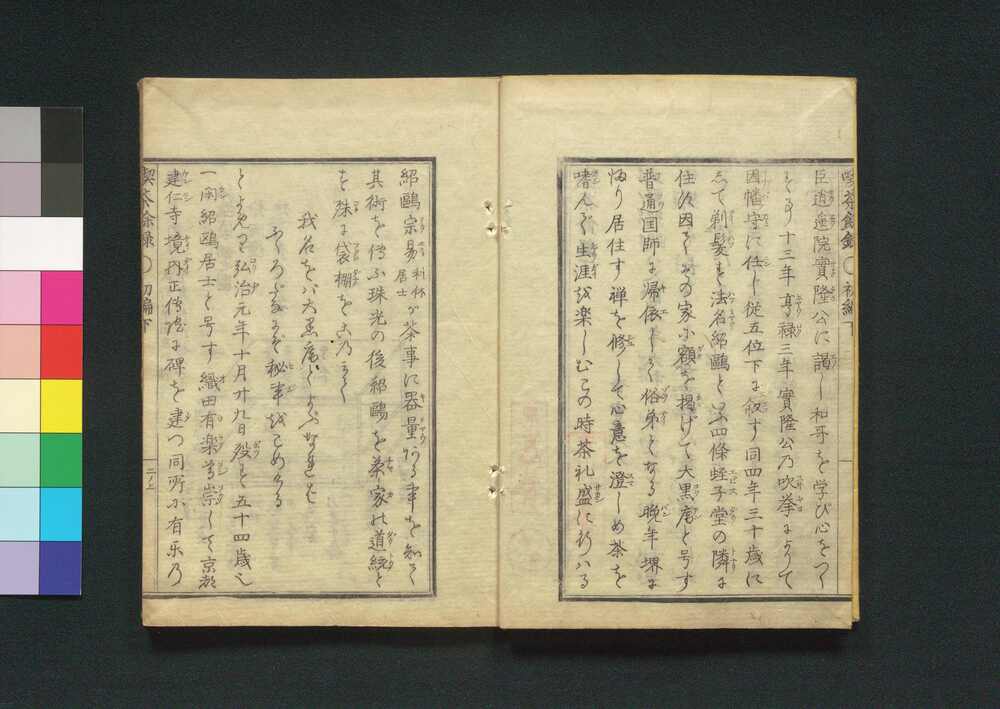 喫茶餘録 ○ 初編下
臣逍遥院實隆公に謁し和哥を学び心をつく
十三年享禄三年實隆公乃吹挙によりて
因幡守に任し従五位下に叙す同四年三十歳に
して剃髪す法名紹鷗と云四條蛭子堂の隣に
住す因てその家に額を掲げて大黒庵と号す
普通国師に帰依し俗弟となる晩年堺に
帰り居住す禅を修して心意を澄しめ茶を
嗜んで生涯を楽しむこの時茶礼盛に行ハる
紹鷗宗易利休居士が茶事に器量ある事を知て
其術を傳ふ珠光の後紹鷗を茶家の道統と
を殊に袋棚を
我名をバ大黒庵といふなれば
ふくろだなにぞ秘事をこめける
と弘治元年十月廿九日殁す五十四歳
一閑紹鷗居士と号す織田有楽崇して京都
建仁寺境内正傳院に碑を建つ同所に有乐乃
喫茶餘録 ○ 初編下